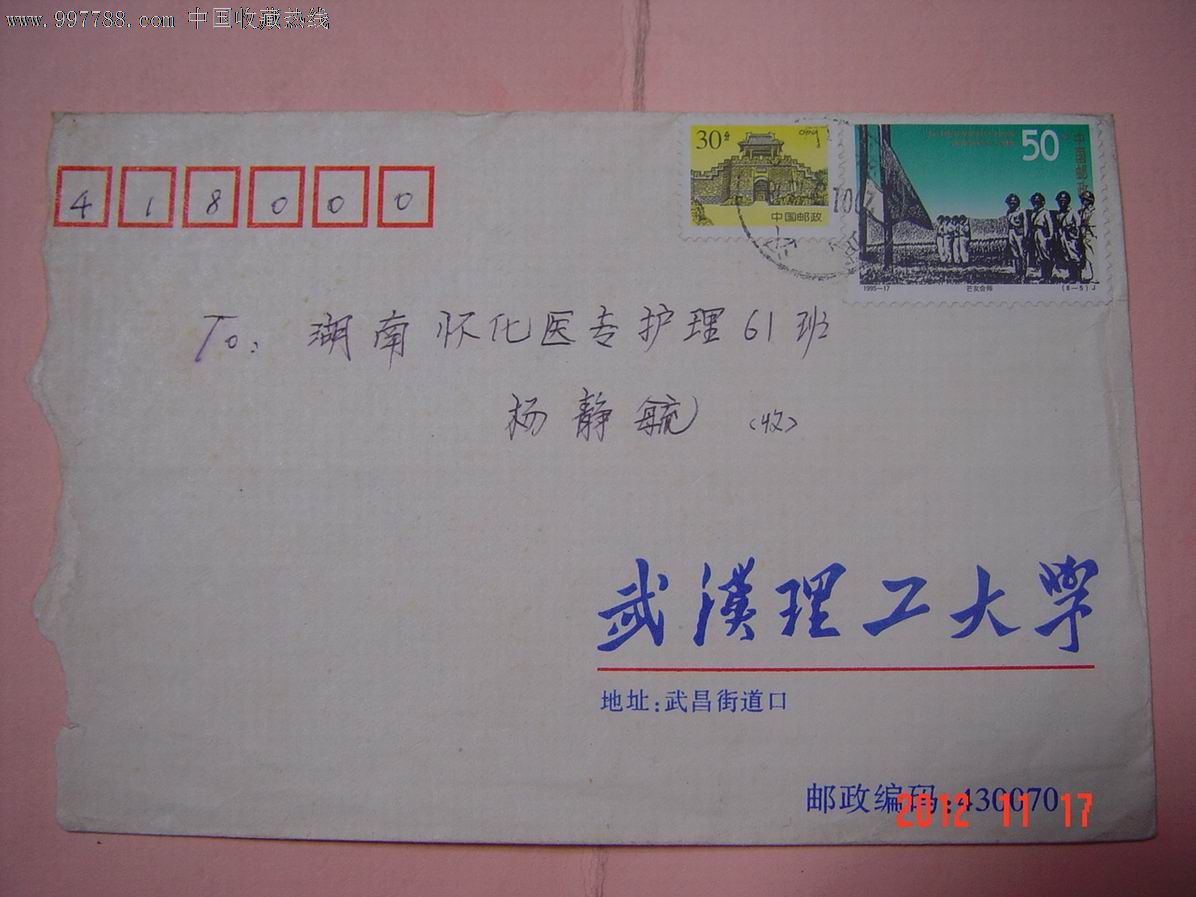 www.997788.com 中国收藏热线
30分
CHINA
中国邮政
50
中国邮政
1995-17
芒友会师
(8-5)J
418000
To: 湖南怀化医专护理61班
杨静毓(收)
武漢理工大学
地址:武昌街道口
邮政编码:430070
2012 11 17